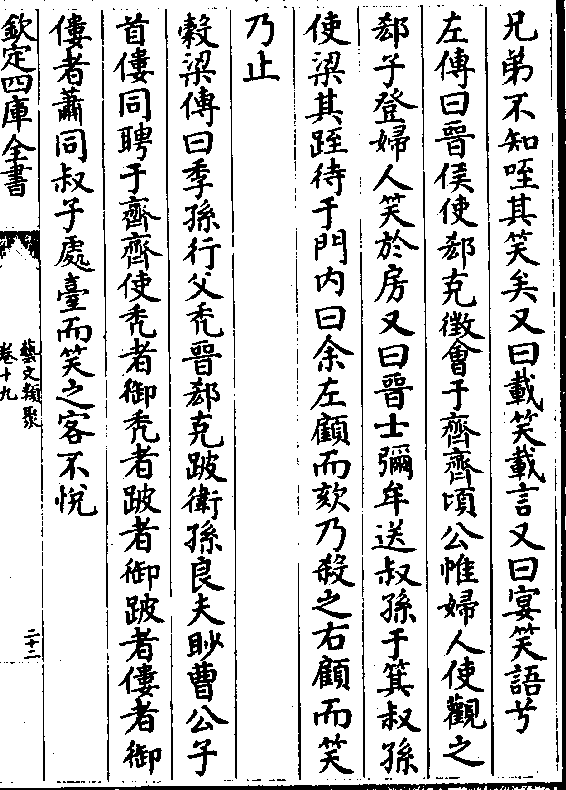 兄弟不知咥其笑矣又曰載笑載言又曰宴笑語兮
左傳曰晉侯使郤克徵會于齊齊頃公惟婦人使觀之
郤子登婦人笑於房又曰晉士彌牟送叔孫于箕叔孫
使梁其踁待于門内曰余左顧而欬乃殺之右顧而笑
乃止
穀梁傳曰季孫行父秃晉郤克跛衛孫良夫眇曹公子
首僂同聘于齊齊使秃者御秃者跛者御跛者僂者御
僂者蕭同叔子處臺而笑之客不悦
欽定四庫全書
藝文類聚
卷十九
二十二